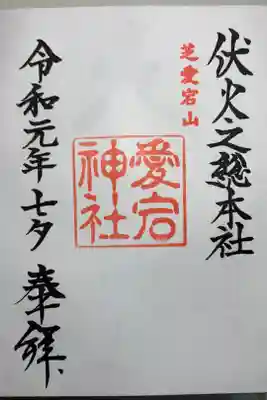 伏火之總本社
芝愛宕山
愛宕
神社
令和元年七夕
奉拝